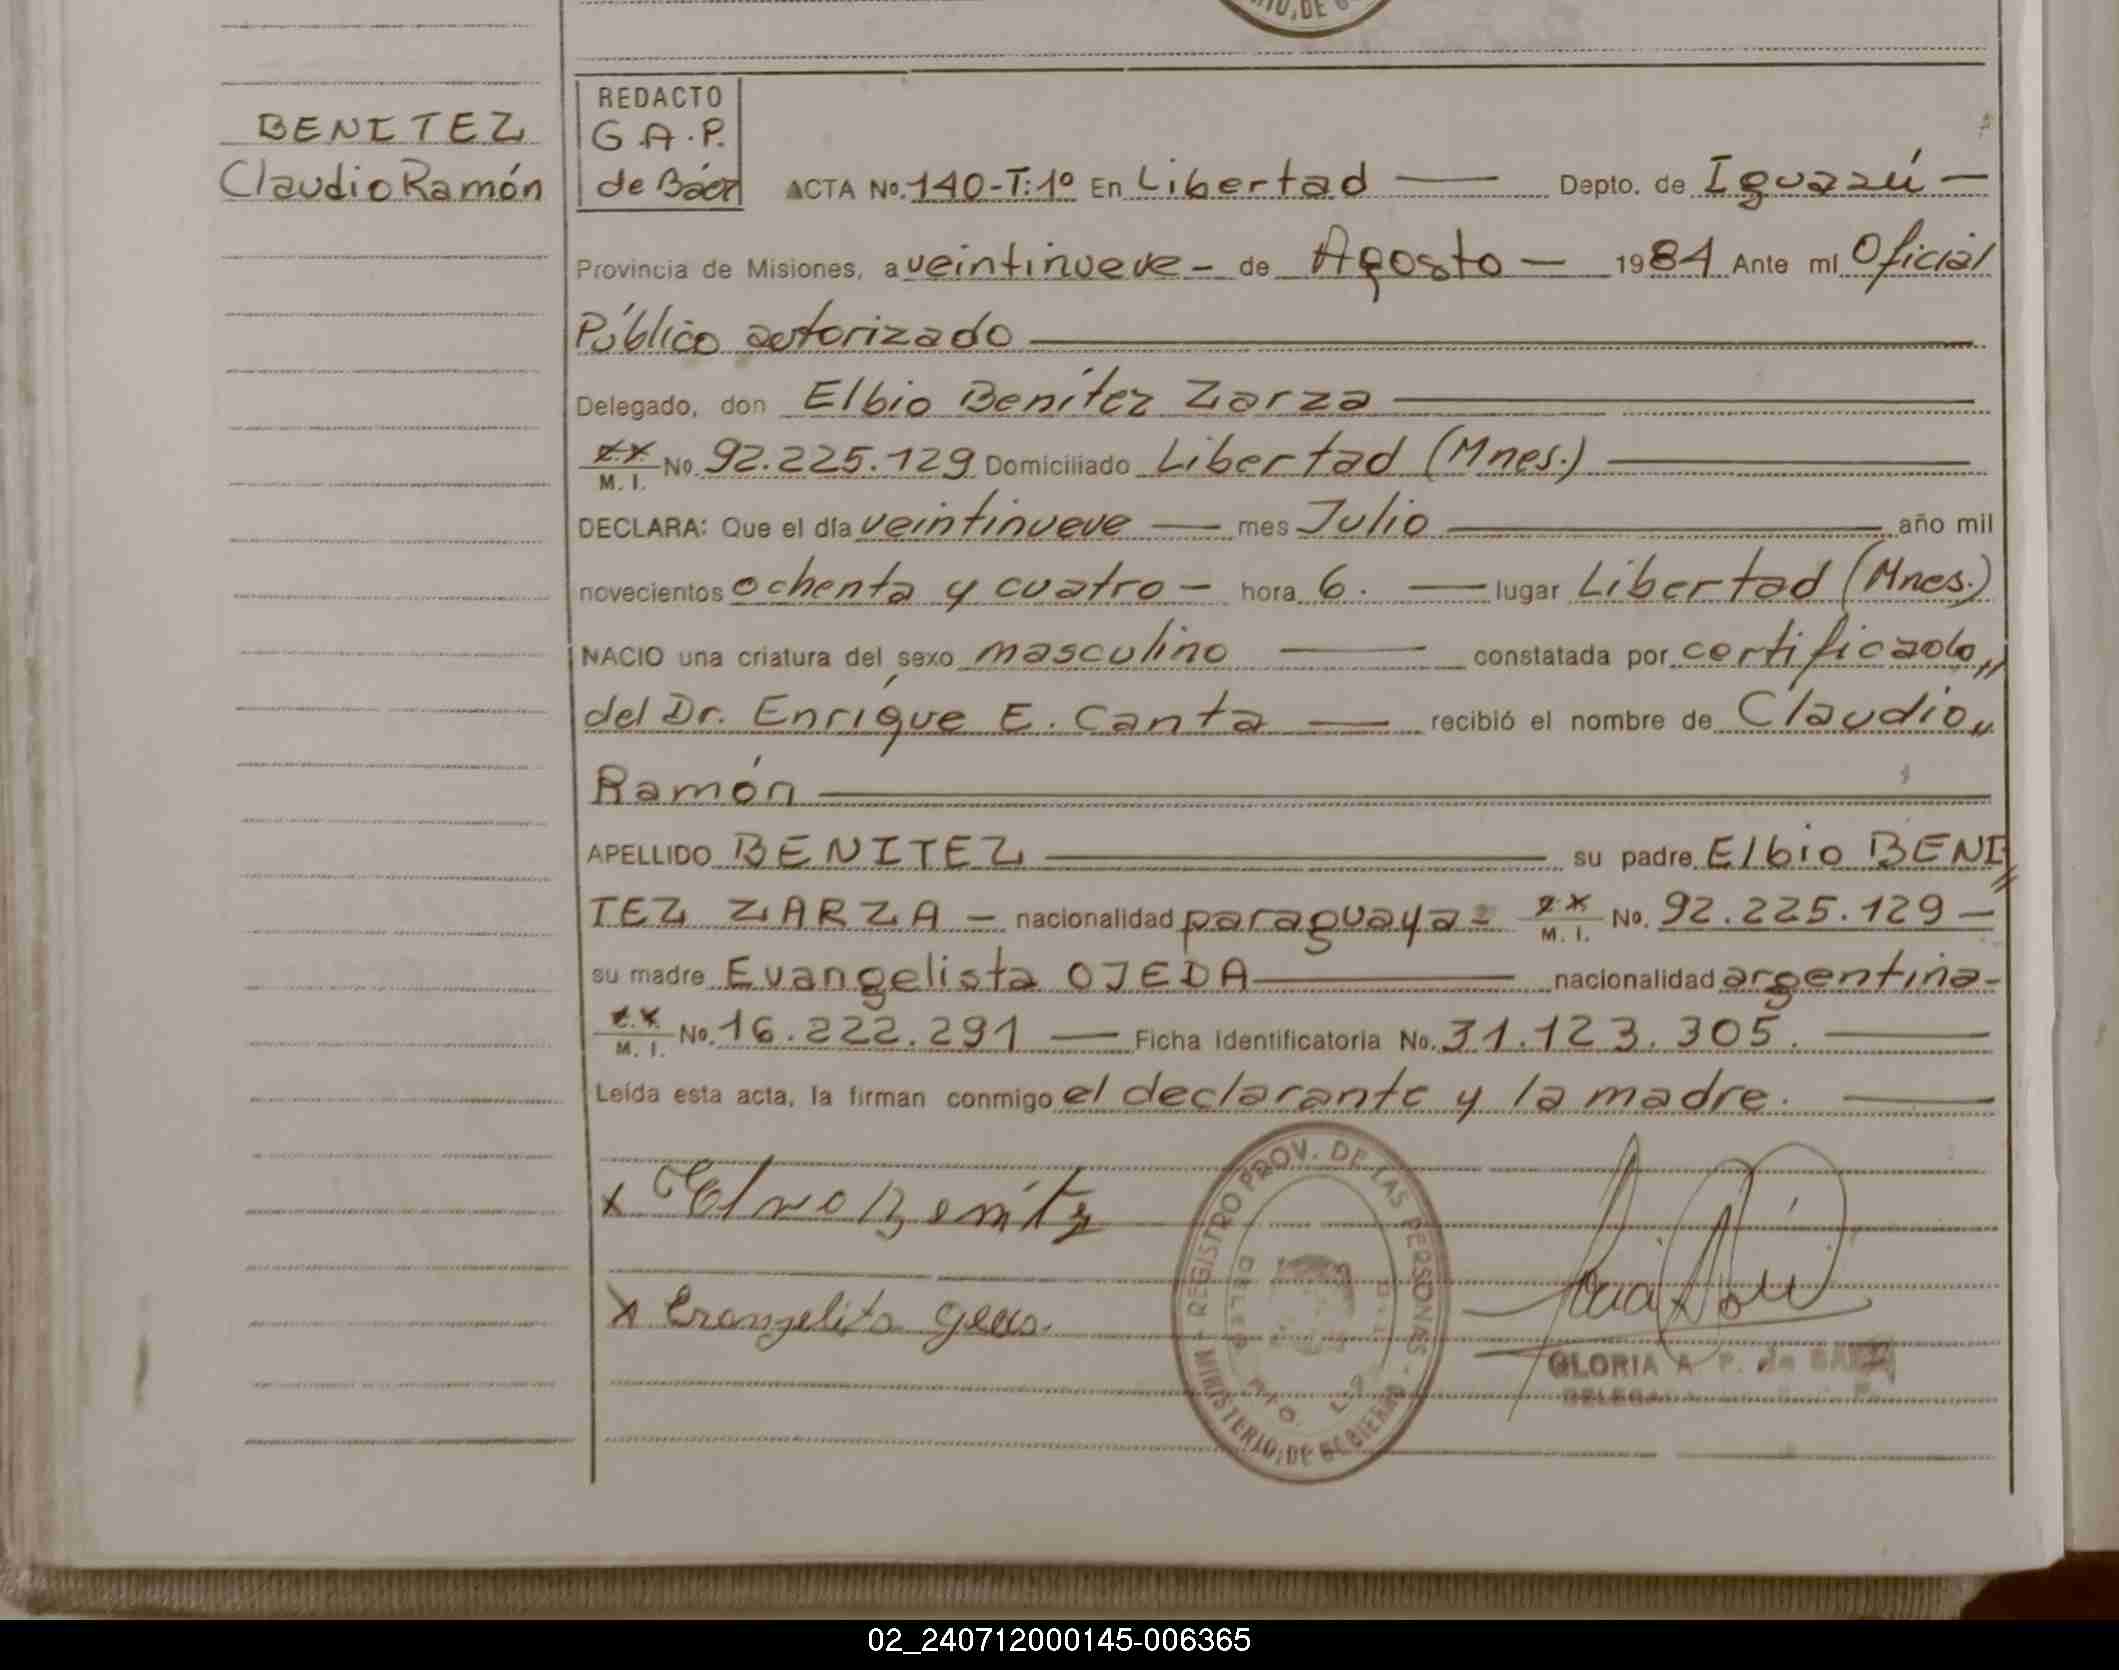 BENITEZ
Claudio Ramón
REDACTO
G.A.P.
de Báez
ACTA No. 140-T:1º En Libertad — Depto. de Iguazú —
Provincia de Misiones, a veintinueve - de Agosto — 1984 Ante mí Oficial
Público autorizado
Delegado, don Elbio Benítez Zarza
M. I. No. 92.225.129 Domiciliado Libertad (Mnes.)
DECLARA: Que el día veintinueve — mes Julio — año mil
novecientos ochenta y cuatro - hora 6. — lugar Libertad (Mnes.)
NACIO una criatura del sexo masculino — constatada por certificado,,
del Dr. Enrique E. Canta — recibió el nombre de Claudio,,
Ramón
APELLIDO BENITEZ — su padre Elbio BENI
TEZ ZARZA - nacionalidad paraguaya - M. I. No. 92.225.129 —
su madre Evangelista OJEDA — nacionalidad argentina -
M. I. No. 16.222.291 — Ficha Identificatoria No. 31.123.305. —
Leída esta acta, la firman conmigo el declarante y la madre. —
REGISTRO PROV. DE LAS PERSONAS - MINISTERIO, DE GOBIERNO
GLORIA A P. de BAEZ
02_240712000145-006365